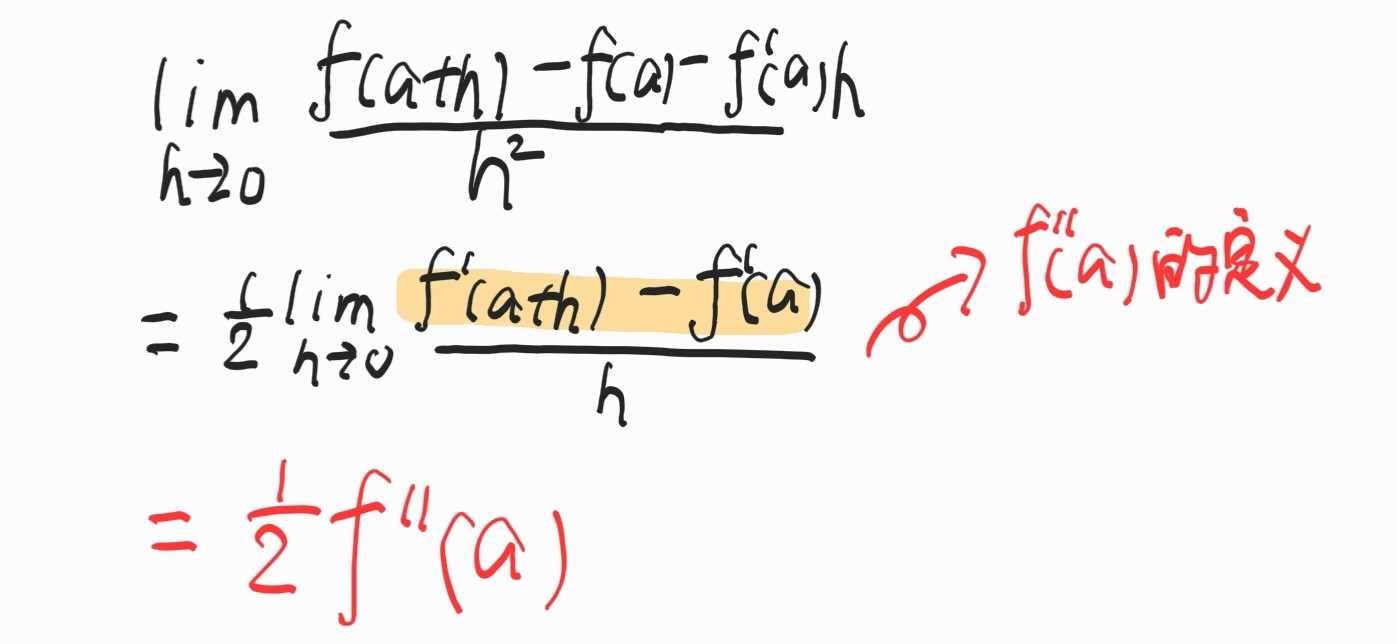 lim h→0 f(a+h) - f(a) - f'(a)h / h²
= 1/2 lim h→0 f'(a+h) - f'(a) / h
f''(a)的定义
= 1/2 f''(a)